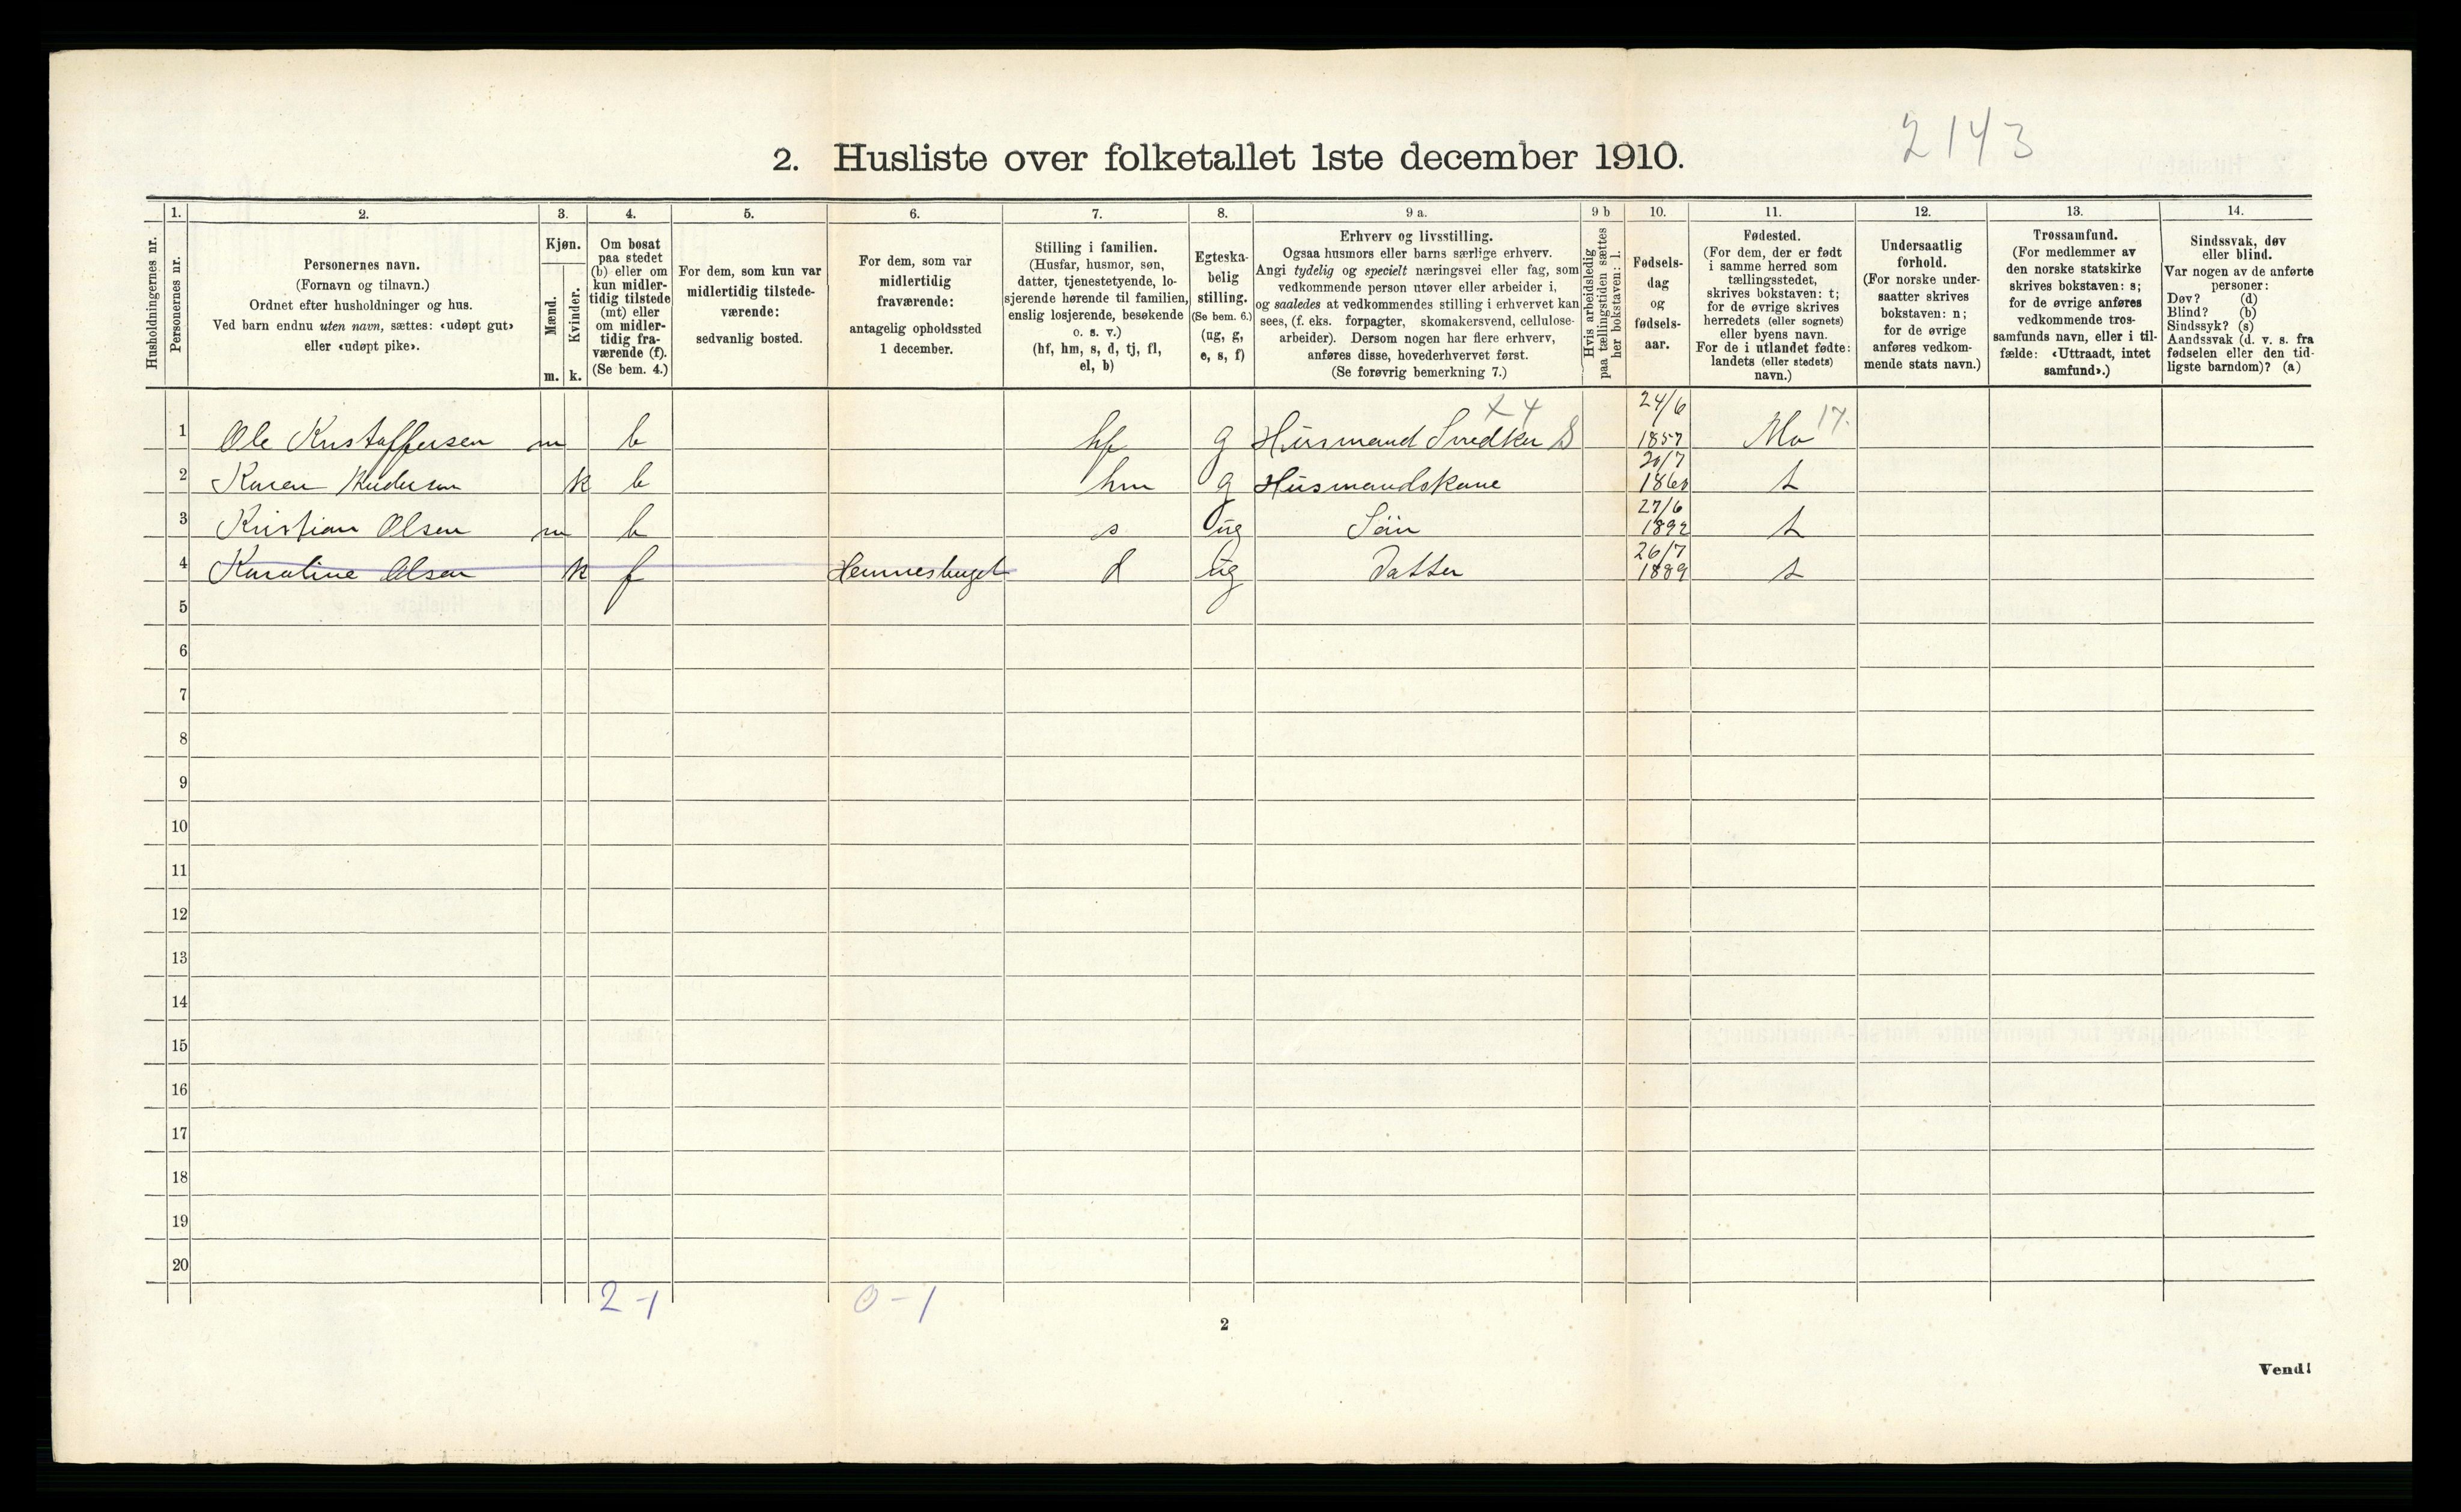 2143
2. Husliste over folketallet 1ste december 1910.
1. 2. 3. 4. 5. 6. 7. 8. 9 a. 9 b 10. 11. 12. 13. 14.
Husholdningernes nr.
Personernes nr.
Personernes navn.
(Fornavn og tilnavn.)
Ordnet efter husholdninger og hus.
Ved barn endnu uten navn, sættes: «udøpt gut»
eller «udøpt pike».
Kjøn.
Mænd.
Kvinder.
m. k.
Om bosat
paa stedet
(b) eller om
kun midler-
tidig tilstede
(mt) eller
om midler-
tidig fra-
værende (f).
(Se bem. 4.)
For dem, som kun var
midlertidig tilstede-
værende:
sedvanlig bosted.
For dem, som var
midlertidig
fraværende:
antagelig opholdssted
1 december.
Stilling i familien.
(Husfar, husmor, søn,
datter, tjenestetyende, lo-
sjerende hørende til familien,
enslig losjerende, besøkende
o. s. v.)
(hf, hm, s, d, tj, fl,
el, b)
Egteska-
belig
stilling.
(Se bem. 6.)
(ug, g,
e, s, f)
Erhverv og livsstilling.
Ogsaa husmors eller barns særlige erhverv.
Angi tydelig og specielt næringsvei eller fag, som
vedkommende person utøver eller arbeider i,
og saaledes at vedkommendes stilling i erhvervet kan
sees, (f. eks. forpagter, skomakersvend, cellulose-
arbeider). Dersom nogen har flere erhverv,
anføres disse, hovederhvervet først.
(Se forøvrig bemerkning 7.)
Hvis arbeidsledig
paa tællingstiden sættes
her bokstaven: l.
Fødsels-
dag
og
fødsels-
aar.
Fødested.
(For dem, der er født
i samme herred som
tællingsstedet,
skrives bokstaven: t;
for de øvrige skrives
herredets (eller sognets)
eller byens navn.
For de i utlandet fødte:
landets (eller stedets)
navn.)
Undersaatlig
forhold.
(For norske under-
saatter skrives
bokstaven: n;
for de øvrige
anføres vedkom-
mende stats navn.)
Trossamfund.
(For medlemmer av
den norske statskirke
skrives bokstaven: s;
for de øvrige anføres
vedkommende tros-
samfunds navn, eller i til-
fælde: «Uttraadt, intet
samfund».)
Sindssvak, døv
eller blind.
Var nogen av de anførte
personer:
Døv? (d)
Blind? (b)
Sindssyk? (s)
Aandssvak (d. v. s. fra
fødselen eller den tid-
ligste barndom)? (a)
1 Ole Kristoffersen m b hf g Husmand Snedker S X 4 24/6 1857 Mo 17.
2 Karen k b hm g Husmandskone 20/7 t
3 Kristian Olsen m b s ug Sön 27/6 1892 t
4 Karoline Olsen k f d ug Datter 26/7 1889 t
5
6
7
8
9
10
11
12
13
14
15
16
17
18
19
20
2-1 0-1
2
Vend!